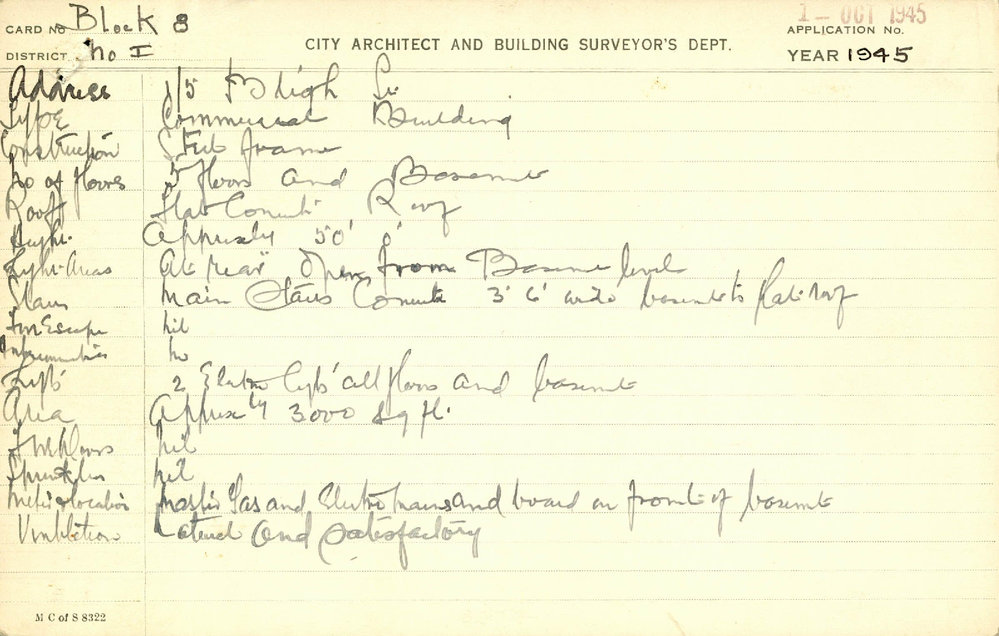 CARD No Block 8
1 – OCT 1945
APPLICATION No.
DISTRICT No I
CITY ARCHITECT AND BUILDING SURVEYOR'S DEPT.
YEAR 1945
Address 1/5 Bligh St.
Type Commercial Building
Construction Steel frame
No of floors floors and Basement
Roof Flat Concrete Roof
Height Approxly 50' 0"
Light Areas At rear open from Basement level
Stairs Main Stairs Concrete 3' 6" wide basement to flat roof
Fire Escape nil
no
Lifts 2 Electric Lifts all floors and basement
Area Approxly 3000 sq ft.
Fire Doors nil
Sprinkler nil
Meter & location Master Gas and Electric mains and board on front of basement
Ventilation Lateral and satisfactory
M C of S 8322